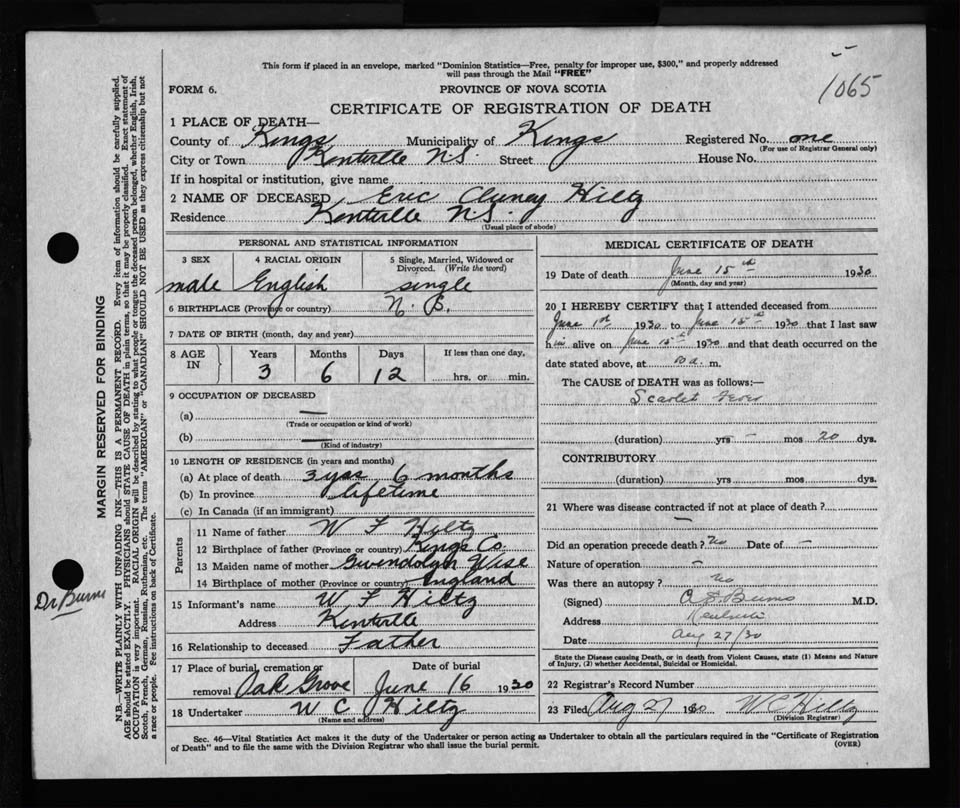 1065
This form if placed in an envelope, marked "Dominion Statistics—Free, penalty for improper use, $300," and properly addressed
will pass through the Mail "FREE"
FORM 6. PROVINCE OF NOVA SCOTIA
CERTIFICATE OF REGISTRATION OF DEATH
1 PLACE OF DEATH—
County of Kings Municipality of Kings Registered No. one
(For use of Registrar General only)
City or Town Kentville N.S. Street House No.
If in hospital or institution, give name
2 NAME OF DECEASED Eric Cluney Hiltz
Residence Kentville N.S.
(Usual place of abode)
PERSONAL AND STATISTICAL INFORMATION
3 SEX 4 RACIAL ORIGIN 5 Single, Married, Widowed or
Divorced. (Write the word)
male English single
6 BIRTHPLACE (Province or country) N.S.
7 DATE OF BIRTH (month, day and year)
8 AGE IN Years Months Days If less than one day,
3 6 12 hrs. or min.
9 OCCUPATION OF DECEASED
(a) —
(Trade or occupation or kind of work)
(b) —
(Kind of industry)
10 LENGTH OF RESIDENCE (in years and months)
(a) At place of death 3 yrs 6 months
(b) In province lifetime
(c) In Canada (if an immigrant)
Parents
11 Name of father W F Hiltz
12 Birthplace of father (Province or country) Kings Co
13 Maiden name of mother Gwendolyn Wise
14 Birthplace of mother (Province or country) England
15 Informant's name W F Hiltz
Address Kentville
16 Relationship to deceased Father
17 Place of burial, cremation or Date of burial
removal Oak Grove June 16 1930
18 Undertaker W C Hiltz
(Name and address)
MEDICAL CERTIFICATE OF DEATH
19 Date of death June 15th 1930
(Month, day and year)
20 I HEREBY CERTIFY that I attended deceased from
June 1st 1930 to June 15th 1930 that I last saw
him alive on June 15th 1930 and that death occurred on the
date stated above, at a. m.
The CAUSE of DEATH was as follows:—
Scarlet Fever
(duration) yrs – mos 20 dys.
CONTRIBUTORY
(duration) yrs mos dys.
21 Where was disease contracted if not at place of death?
—
Did an operation precede death? No Date of —
Nature of operation —
Was there an autopsy? no
(Signed) Burns M.D.
Address Kentville
Date Aug 27/30
State the Disease causing Death, or in death from Violent Causes, state (1) Means and Nature
of Injury, (2) whether Accidental, Suicidal or Homicidal.
22 Registrar's Record Number
23 Filed Aug 27 1930 W C Hiltz
(Division Registrar)
Sec. 46—Vital Statistics Act makes it the duty of the Undertaker or person acting as Undertaker to obtain all the particulars required in the "Certificate of Registration
of Death" and to file the same with the Division Registrar who shall issue the burial permit. (OVER)
MARGIN RESERVED FOR BINDING
N.B.—WRITE PLAINLY WITH UNFADING INK—THIS IS A PERMANENT RECORD. Every item of information should be carefully supplied.
AGE should be stated EXACTLY. PHYSICIANS should STATE CAUSE OF DEATH in plain terms, so that it may be properly classified. Exact statement of
OCCUPATION is very important. RACIAL ORIGIN will be described by stating to what people or tongue the deceased person belonged, whether English, Irish,
Scotch, French, German, Russian, Ruthenian, etc. The terms "AMERICAN" or "CANADIAN" SHOULD NOT BE USED as they express citizenship but not
a race or people. See instructions on back of Certificate.
Dr Burns